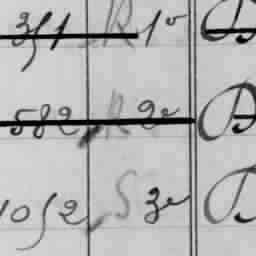 351 R 1º B
582, R 2º B
1052, S 3º B